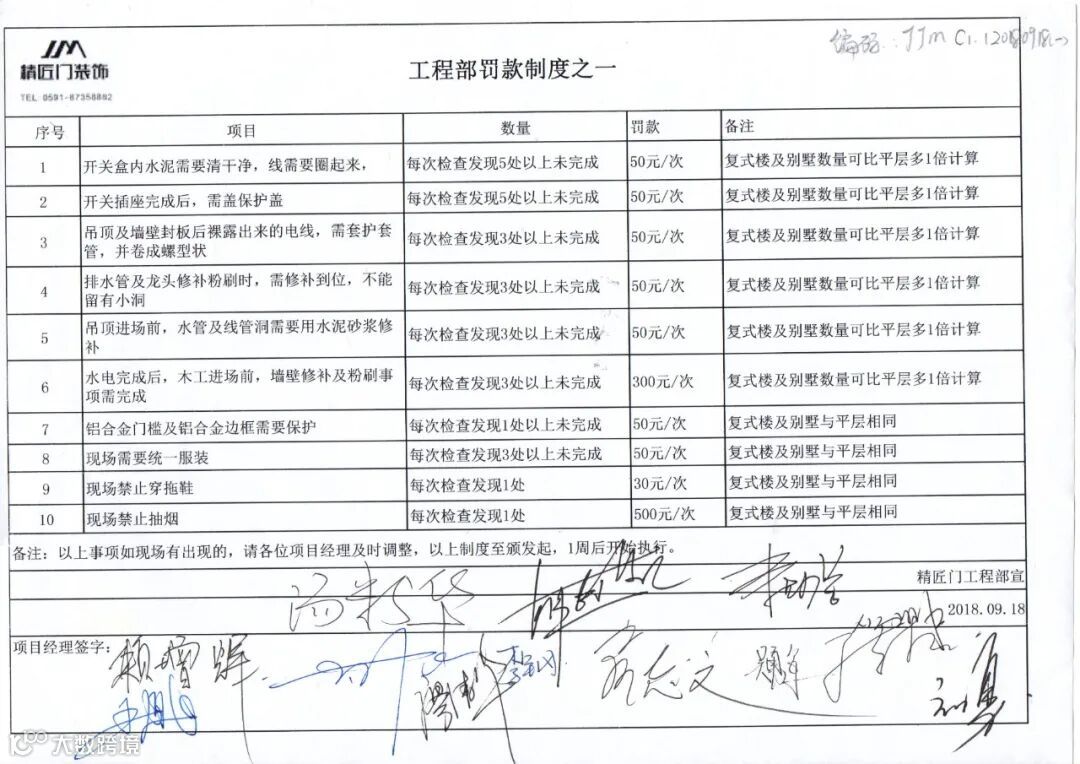 编码:JJM C1.120180918(一)
JJM
精匠门装饰
TEL 0591-87358882
工程部罚款制度之一
序号 项目 数量 罚款 备注
1 开关盒内水泥需要清干净，线需要圈起来， 每次检查发现5处以上未完成 50元/次 复式楼及别墅数量可比平层多1倍计算
2 开关插座完成后，需盖保护盖 每次检查发现5处以上未完成 50元/次 复式楼及别墅数量可比平层多1倍计算
3 吊顶及墙壁封板后裸露出来的电线，需套护套
管，并卷成螺型状 每次检查发现3处以上未完成 50元/次 复式楼及别墅数量可比平层多1倍计算
4 排水管及龙头修补粉刷时，需修补到位，不能
留有小洞 每次检查发现3处以上未完成 50元/次 复式楼及别墅数量可比平层多1倍计算
5 吊顶进场前，水管及线管洞需要用水泥砂浆修
补 每次检查发现3处以上未完成 50元/次 复式楼及别墅数量可比平层多1倍计算
6 水电完成后，木工进场前，墙壁修补及粉刷事
项需完成 每次检查发现3处以上未完成 300元/次 复式楼及别墅数量可比平层多1倍计算
7 铝合金门槛及铝合金边框需要保护 每次检查发现1处以上未完成 50元/次 复式楼及别墅与平层相同
8 现场需要统一服装 每次检查发现3处以上未完成 50元/次 复式楼及别墅与平层相同
9 现场禁止穿拖鞋 每次检查发现1处 30元/次 复式楼及别墅与平层相同
10 现场禁止抽烟 每次检查发现1处 500元/次 复式楼及别墅与平层相同
备注：以上事项如现场有出现的，请各位项目经理及时调整，以上制度至颁发起，1周后开始执行。
精匠门工程部宣
2018.09.18
项目经理签字：
大数跨境